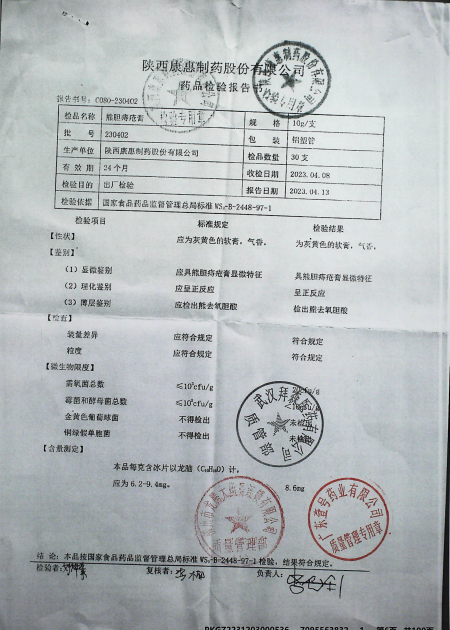 陕西康惠制药股份有限公司
药品检验报告书
报告书号：C080-230402
检品名称 熊胆痔疮膏 规格 10g/支
批号 230402 包装 铝塑管
生产单位 陕西康惠制药股份有限公司 检品数量 30支
有效期 24个月 收检日期 2023.04.08
检验目的 出厂检验 报告日期 2023.04.13
检验依据 国家食品药品监督管理总局标准 WS₃-B-2448-97-1
检验项目 标准规定 检验结果
【性状】 应为灰黄色的软膏，气香。 为灰黄色的软膏，气香。
【鉴别】
（1）显微鉴别 应具熊胆痔疮膏显微特征 具熊胆痔疮膏显微特征
（2）理化鉴别 应呈正反应 呈正反应
（3）薄层鉴别 应检出熊去氧胆酸 检出熊去氧胆酸
【检查】
装量差异 应符合规定 符合规定
粒度 应符合规定 符合规定
【微生物限度】
需氧菌总数 cfu/g
霉菌和酵母菌总数 cfu/g
金黄色葡萄球菌 不得检出 未检
铜绿假单胞菌 不得检出 未检
【含量测定】
本品每克含冰片以龙脑（C₁₀H₁₈O）计，
应为 6.2-9.4mg。 8.6mg
质管部
质量管理部
广东壹号药业有限公司
质量管理专用章
结论：本品按国家食品药品监督管理总局标准 WS₃-B-2448-97-1 检验，结果符合规定。
检验者： 复核者： 负责人：